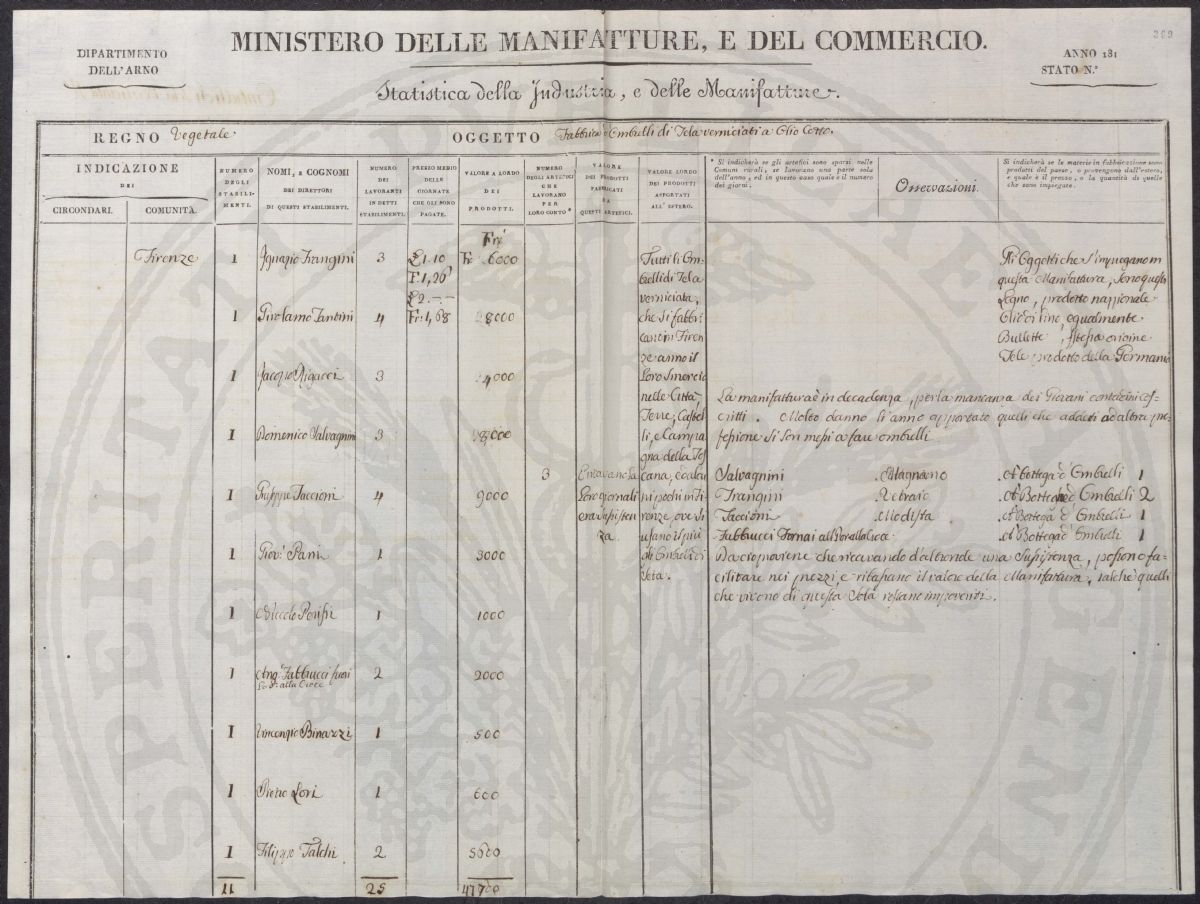 369
DIPARTIMENTO
DELL'ARNO
MINISTERO DELLE MANIFATTURE, E DEL COMMERCIO.
ANNO 181
STATO N.°
Statistica della Industria, e delle Manifatture.
REGNO Vegetale.
OGGETTO Fabbrica d'Ombrelli di Tela verniciati a Olio Cotto.
INDICAZIONE
DEI
CIRCONDARI.
COMUNITÀ.
NUMERO
DEGLI
STABILI-
MENTI.
NOMI, e COGNOMI
DEI DIRETTORI
DI QUESTI STABILIMENTI.
NUMERO
DEI
LAVORANTI
IN DETTI
STABILIMENTI.
PREZZO MEDIO
DELLE
GIORNATE
CHE GLI SONO
PAGATE.
VALORE A LORDO
DEI
PRODOTTI.
NUMERO
DEGLI ARTEFICI
CHE
LAVORANO
PER
LORO CONTO*
VALORE
DEI
PRODOTTI
FABBRICATI
DA
QUESTI ARTEFICI.
VALORE LORDO
DEI
PRODOTTI
ASPORTATI
ALL'ESTERO.
* Si indicherà se gli artefici sono sparsi nelle
Comuni rurali, se lavorano una parte sola
dell'anno, ed in questo caso quale è il numero
dei giorni.
Osservazioni.
Si indicherà se le materie in fabbricazione sono
prodotti del paese, o provengono dall'estero,
e quale è il prezzo, e la quantità di quelle
che sono impiegate.
Firenze
1 Ignazio Frangini 3 £ 1.10 Fr 6000
F. 1,26
£ 2.-.-
1 Girolamo Fantini 4 Fr: 1,68 8000
1 Jacopo Rigacci 3 4000
1 Domenico Salvagnini 3 8000
1 Giuseppe Taccioni 4 9000
1 Giov: Pani 1 3000
1 Niccolo Parissi 1 1000
1 Ang: Fabbrucci fuori 2 2000
Porta alla Croce
1 Vincenzio Binazzi 1 500
1 Pietro Lori 1 600
1 Filippo Falchi 2 5600
11 25 47700
3
loro giornali
era sussisten
za.
Tutti li Om-
brelli di Tela
verniciata,
che si fabbri
cano in Firen
ze anno il
loro smercio
nelle Città,
Terre, Castel
li, e Campa
gna della Tos
cana, ed alcu
ni pochi in Fi
renze, ove si
usano il più
di Ombrelli di
Seta.
Gli Oggetti che s'impiegano in
questa Manifattura, sono questi
Legno, prodotto nazzionale
Olio di lino, egualmente
Bullette, Istessa origine
Tele prodotto della Germania
La manifattura è in decadenza, per la mancanza dei Giovani contadini cos-
critti. Molto danno li anno apportato quelli che addetti ad altra pro-
fessione si son messi a fare ombrelli
Salvagnini Magnano A bottega d'Ombrelli 1
Frangini A Bottega d'Ombrelli 2
Taccioni Modista A Bottega d'Ombrelli 1
Fabbrucci Fornai alla Porta alla Croce A Bottega d'Ombrelli 1
Da ciò proviene che ricavando d'altronde una sussistenza, possono fa-
cilitare nei prezzi, e ribassano il valore della Manifattura, talchè quelli
che vivono di questa sola restano impoveriti.